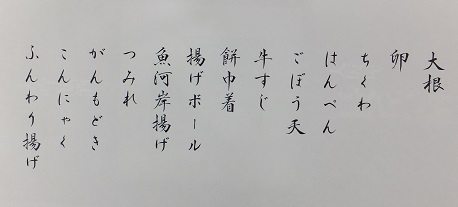 大根
卵
ちくわ
はんぺん
ごぼう天
牛すじ
餅巾着
揚げボール
魚河岸揚げ
つみれ
がんもどき
こんにゃく
ふんわり揚げ